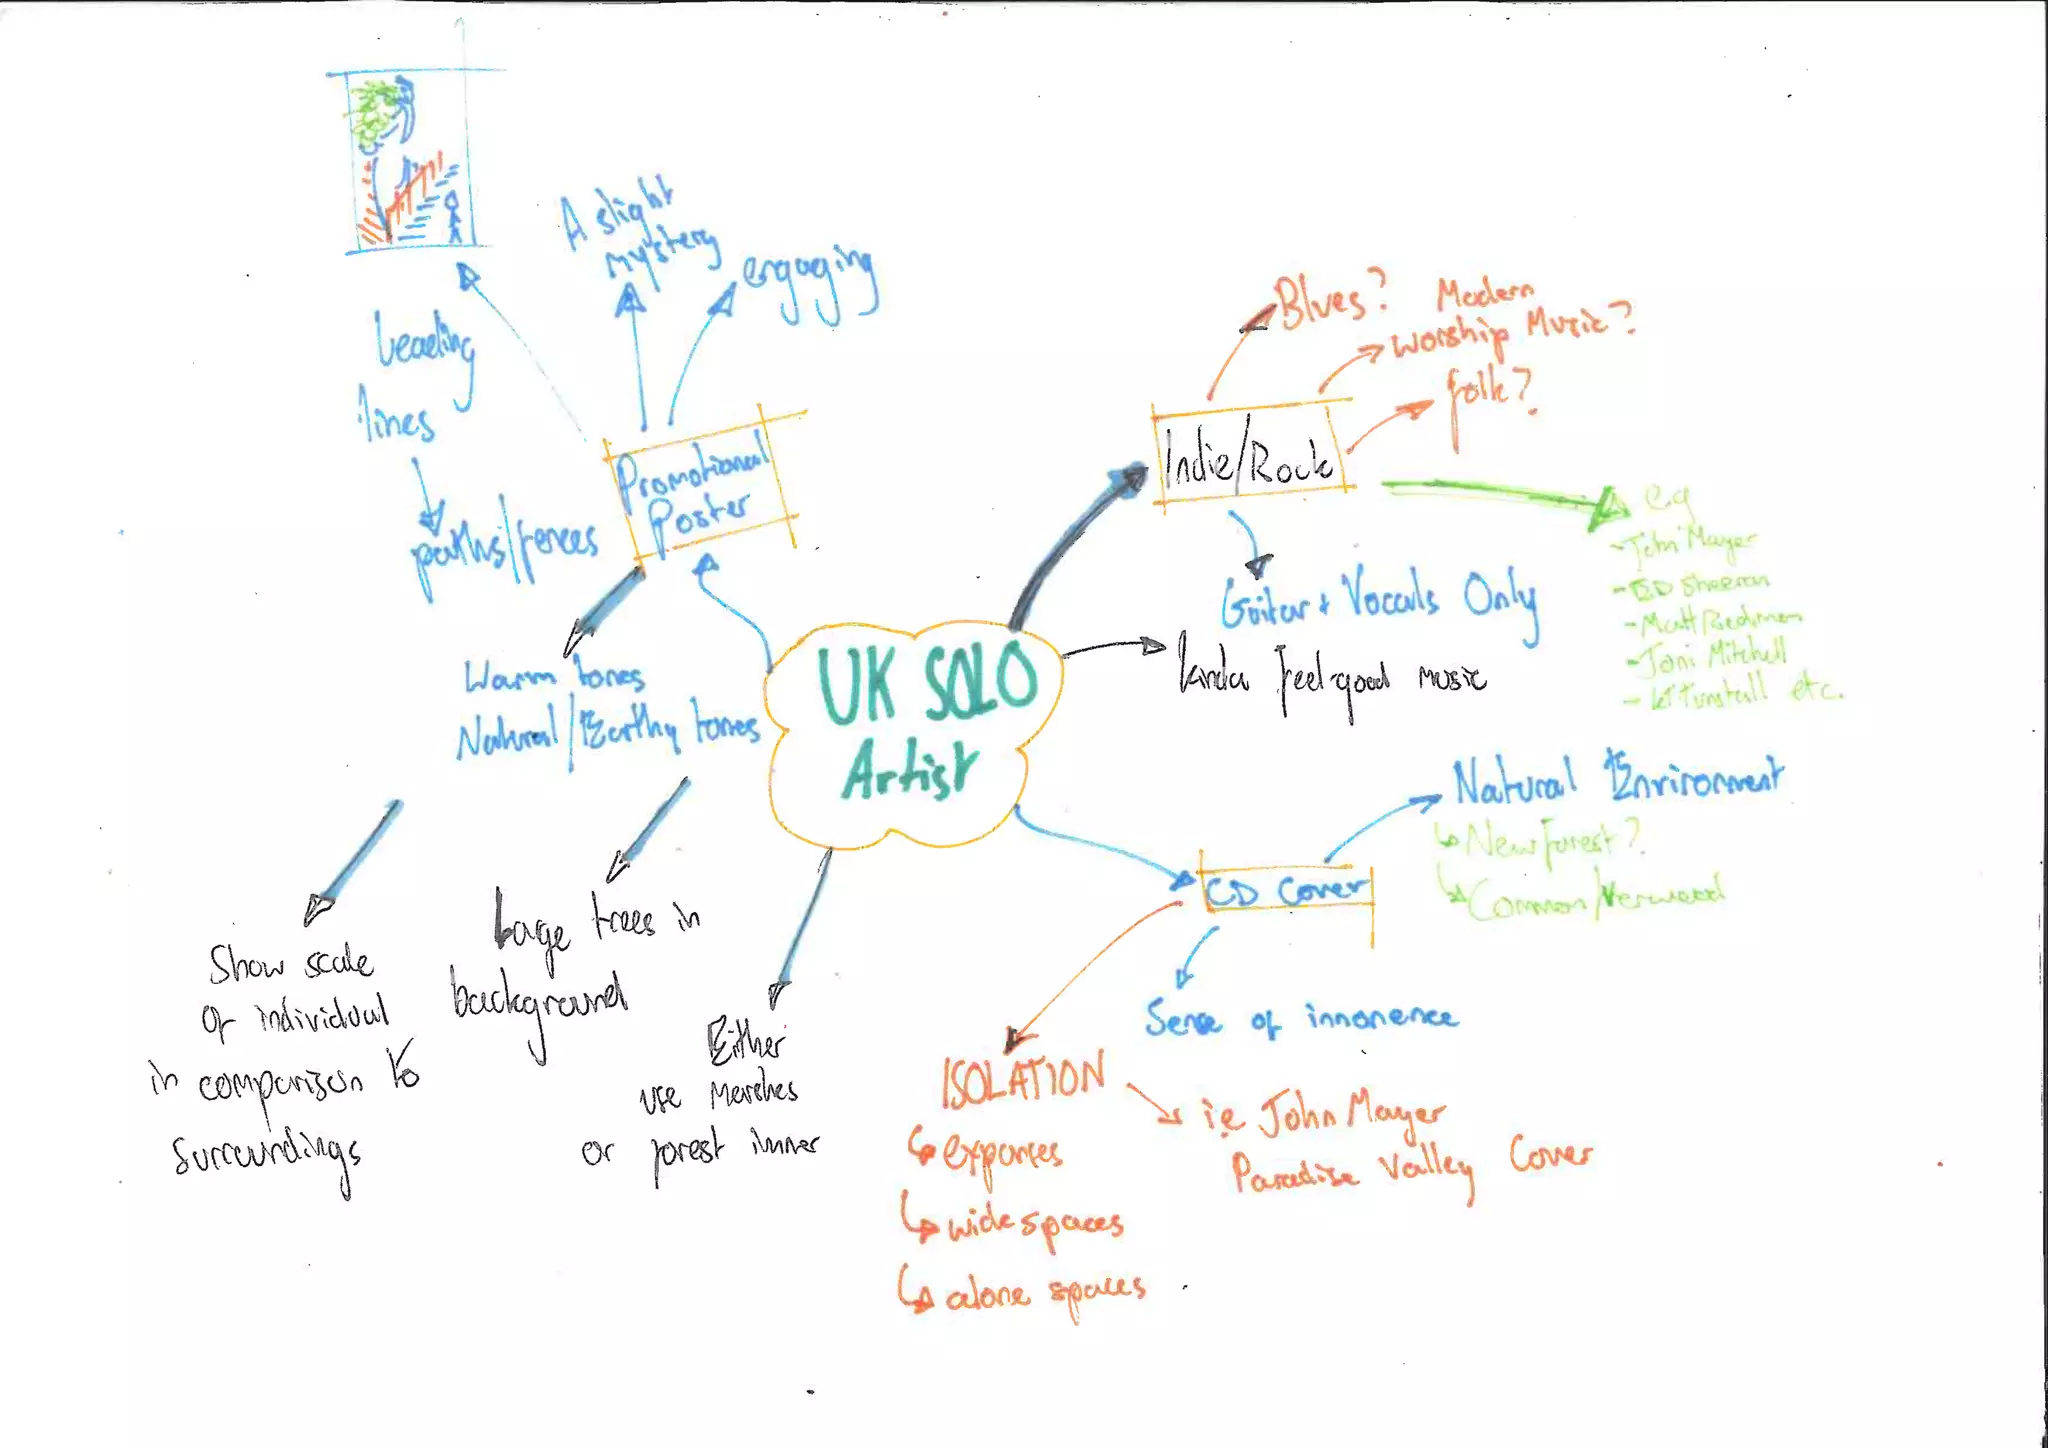 UK SOLO
Artist
Promotional
Poster
A slight
mystery
engaging
Leading
lines
paths/fences
Warm tones
Natural/Earthy tones
Show scale
of individual
in comparison to
surroundings
Large trees in
background
Either
use Marshes
or forest
Indie/Rock
Blues?
Modern
Worship Music?
folk?
e.g
- John Mayer
- ED Sheeran
- Matt Redman
- Joni Mitchell
- KT Tunstall etc.
Guitar + Vocals Only
kinda feel-good music
CD Cover
Natural Environment
New forest?
Common/Verwood
Sense of innonence
ISOLATION
i.e John Mayer
Paradise Valley Cover
expanses
wide spaces
alone spaces